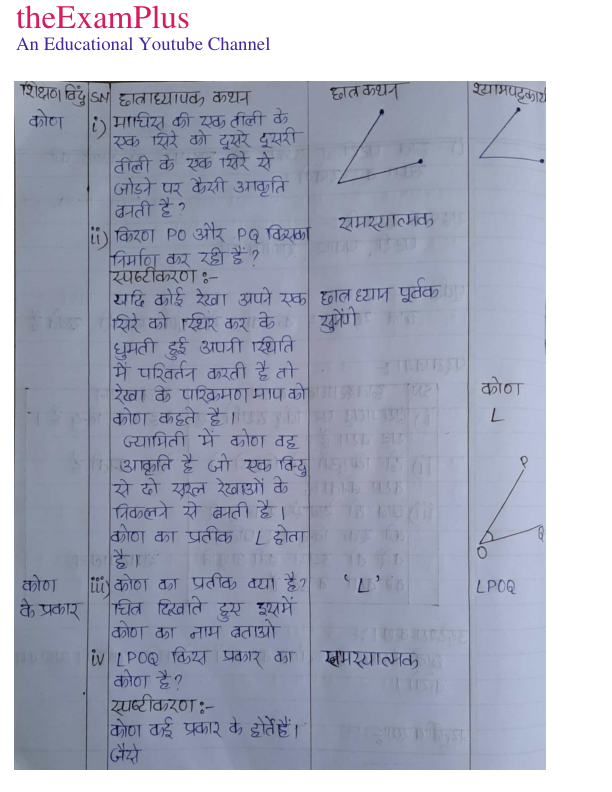 theExamPlus
An Educational Youtube Channel
शिक्षण बिंदु SN छात्राध्यापक कथन छात्र कथन श्यामपट्टकार्य
कोण i) माचिस की एक तीली के
एक सिरे को दूसरे दूसरी
तीली के एक सिरे से
जोड़ने पर कैसी आकृति
बनती है?
समस्यात्मक
ii) किरण PO और PQ किसका
निर्माण कर रही हैं?
स्पष्टीकरण :-
यदि कोई रेखा अपने एक छात्र ध्यान पूर्वक
सिरे को स्थिर कर के सुनेंगे
घुमती हुई अपनी स्थिति
में परिवर्तन करती है तो
रेखा के परिक्रमण माप को कोण
कोण कहते है। L
ज्यामिती में कोण वह
आकृति है जो एक बिंदु P
से दो सरल रेखाओं के
निकलने से बनती है।
कोण का प्रतीक L होता Q
है। O
कोण iii) कोण का प्रतीक क्या है? 'L' LPOQ
के प्रकार चित्र दिखाते हुए इसमें
कोण का नाम बताओ
iv LPOQ किस प्रकार का समस्यात्मक
कोण है?
स्पष्टीकरण :-
कोण कई प्रकार के होते हैं।
जैसे